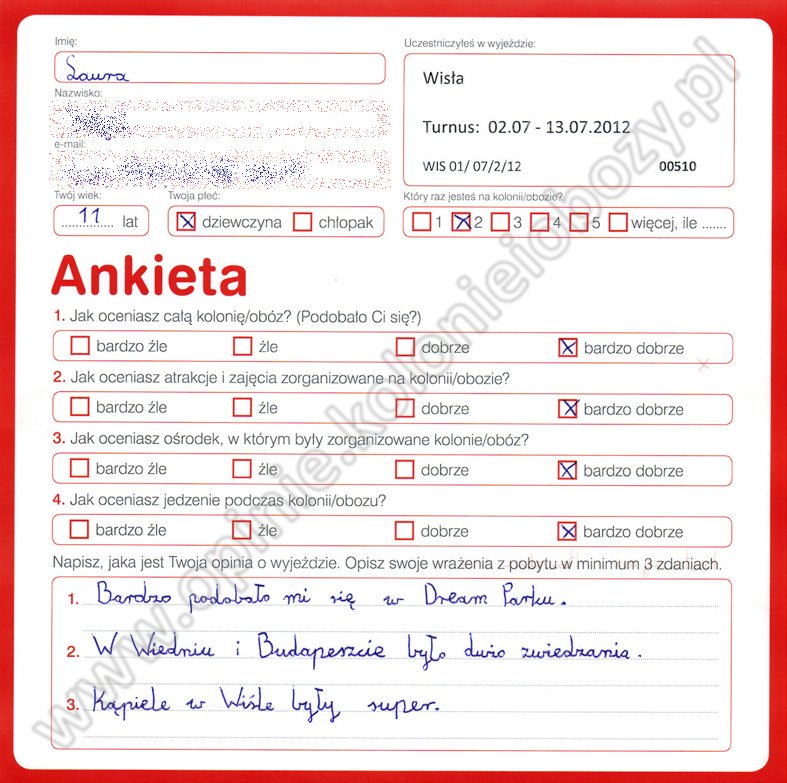 Imię:
Laura
Nazwisko:
e-mail:
Twój wiek:
11 lat
Twoja płeć:
dziewczyna chłopak
Uczestniczyłeś w wyjeździe:
Wisła
Turnus: 02.07 - 13.07.2012
WIS 01/ 07/2/12 00510
Który raz jesteś na kolonii/obozie?
1 2 3 4 5 więcej, ile .......
Ankieta
1. Jak oceniasz całą kolonię/obóz? (Podobało Ci się?)
bardzo źle źle dobrze bardzo dobrze
2. Jak oceniasz atrakcje i zajęcia zorganizowane na kolonii/obozie?
bardzo źle źle dobrze bardzo dobrze
3. Jak oceniasz ośrodek, w którym były zorganizowane kolonie/obóz?
bardzo źle źle dobrze bardzo dobrze
4. Jak oceniasz jedzenie podczas kolonii/obozu?
bardzo źle źle dobrze bardzo dobrze
Napisz, jaka jest Twoja opinia o wyjeździe. Opisz swoje wrażenia z pobytu w minimum 3 zdaniach.
1. Bardzo podobało mi się w Dream Parku.
2. W Wiedniu i Budapeszcie było dużo zwiedzania.
3. Kąpiele w Wiśle były super.
www.opinie.kolonieiobozy.pl